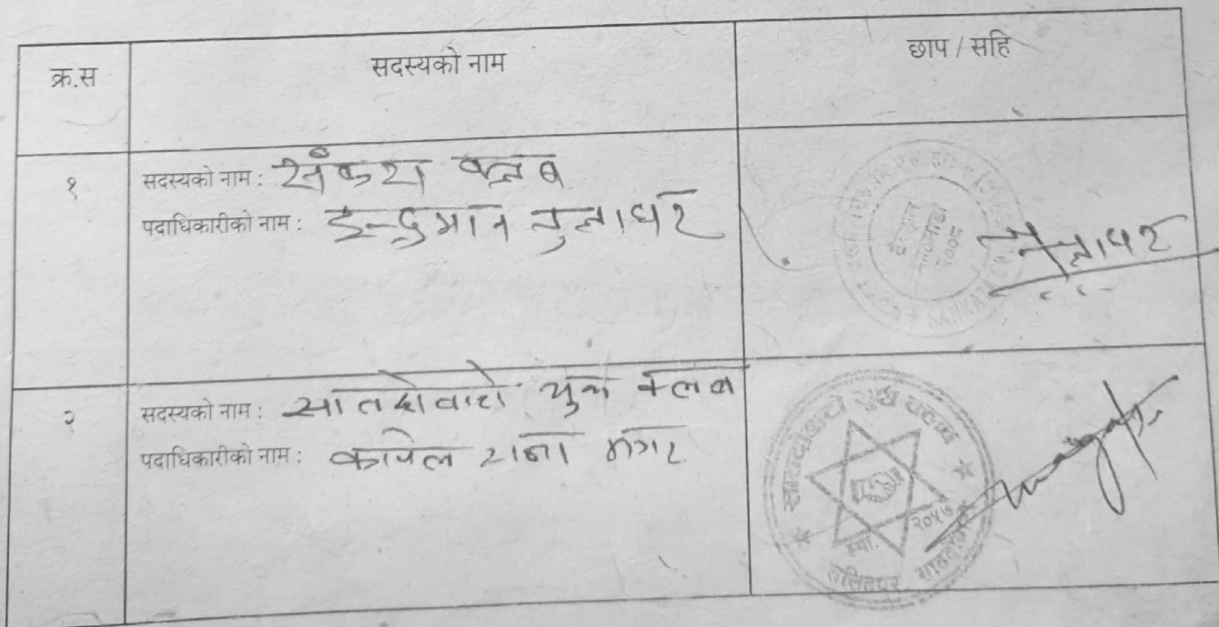 क्र.स
सदस्यको नाम
छाप / सहि
१
सदस्यको नाम : संकटा क्लब
पदाधिकारीको नाम : इन्द्रमान तुलाधर
तुलाधर
२
सदस्यको नाम : सातदोबाटो युथ क्लब
पदाधिकारीको नाम : कपिल राना मगर
सातदोबाटो यूथ क्लब
स्था. २०५७
ललितपुर सातदोबाटो